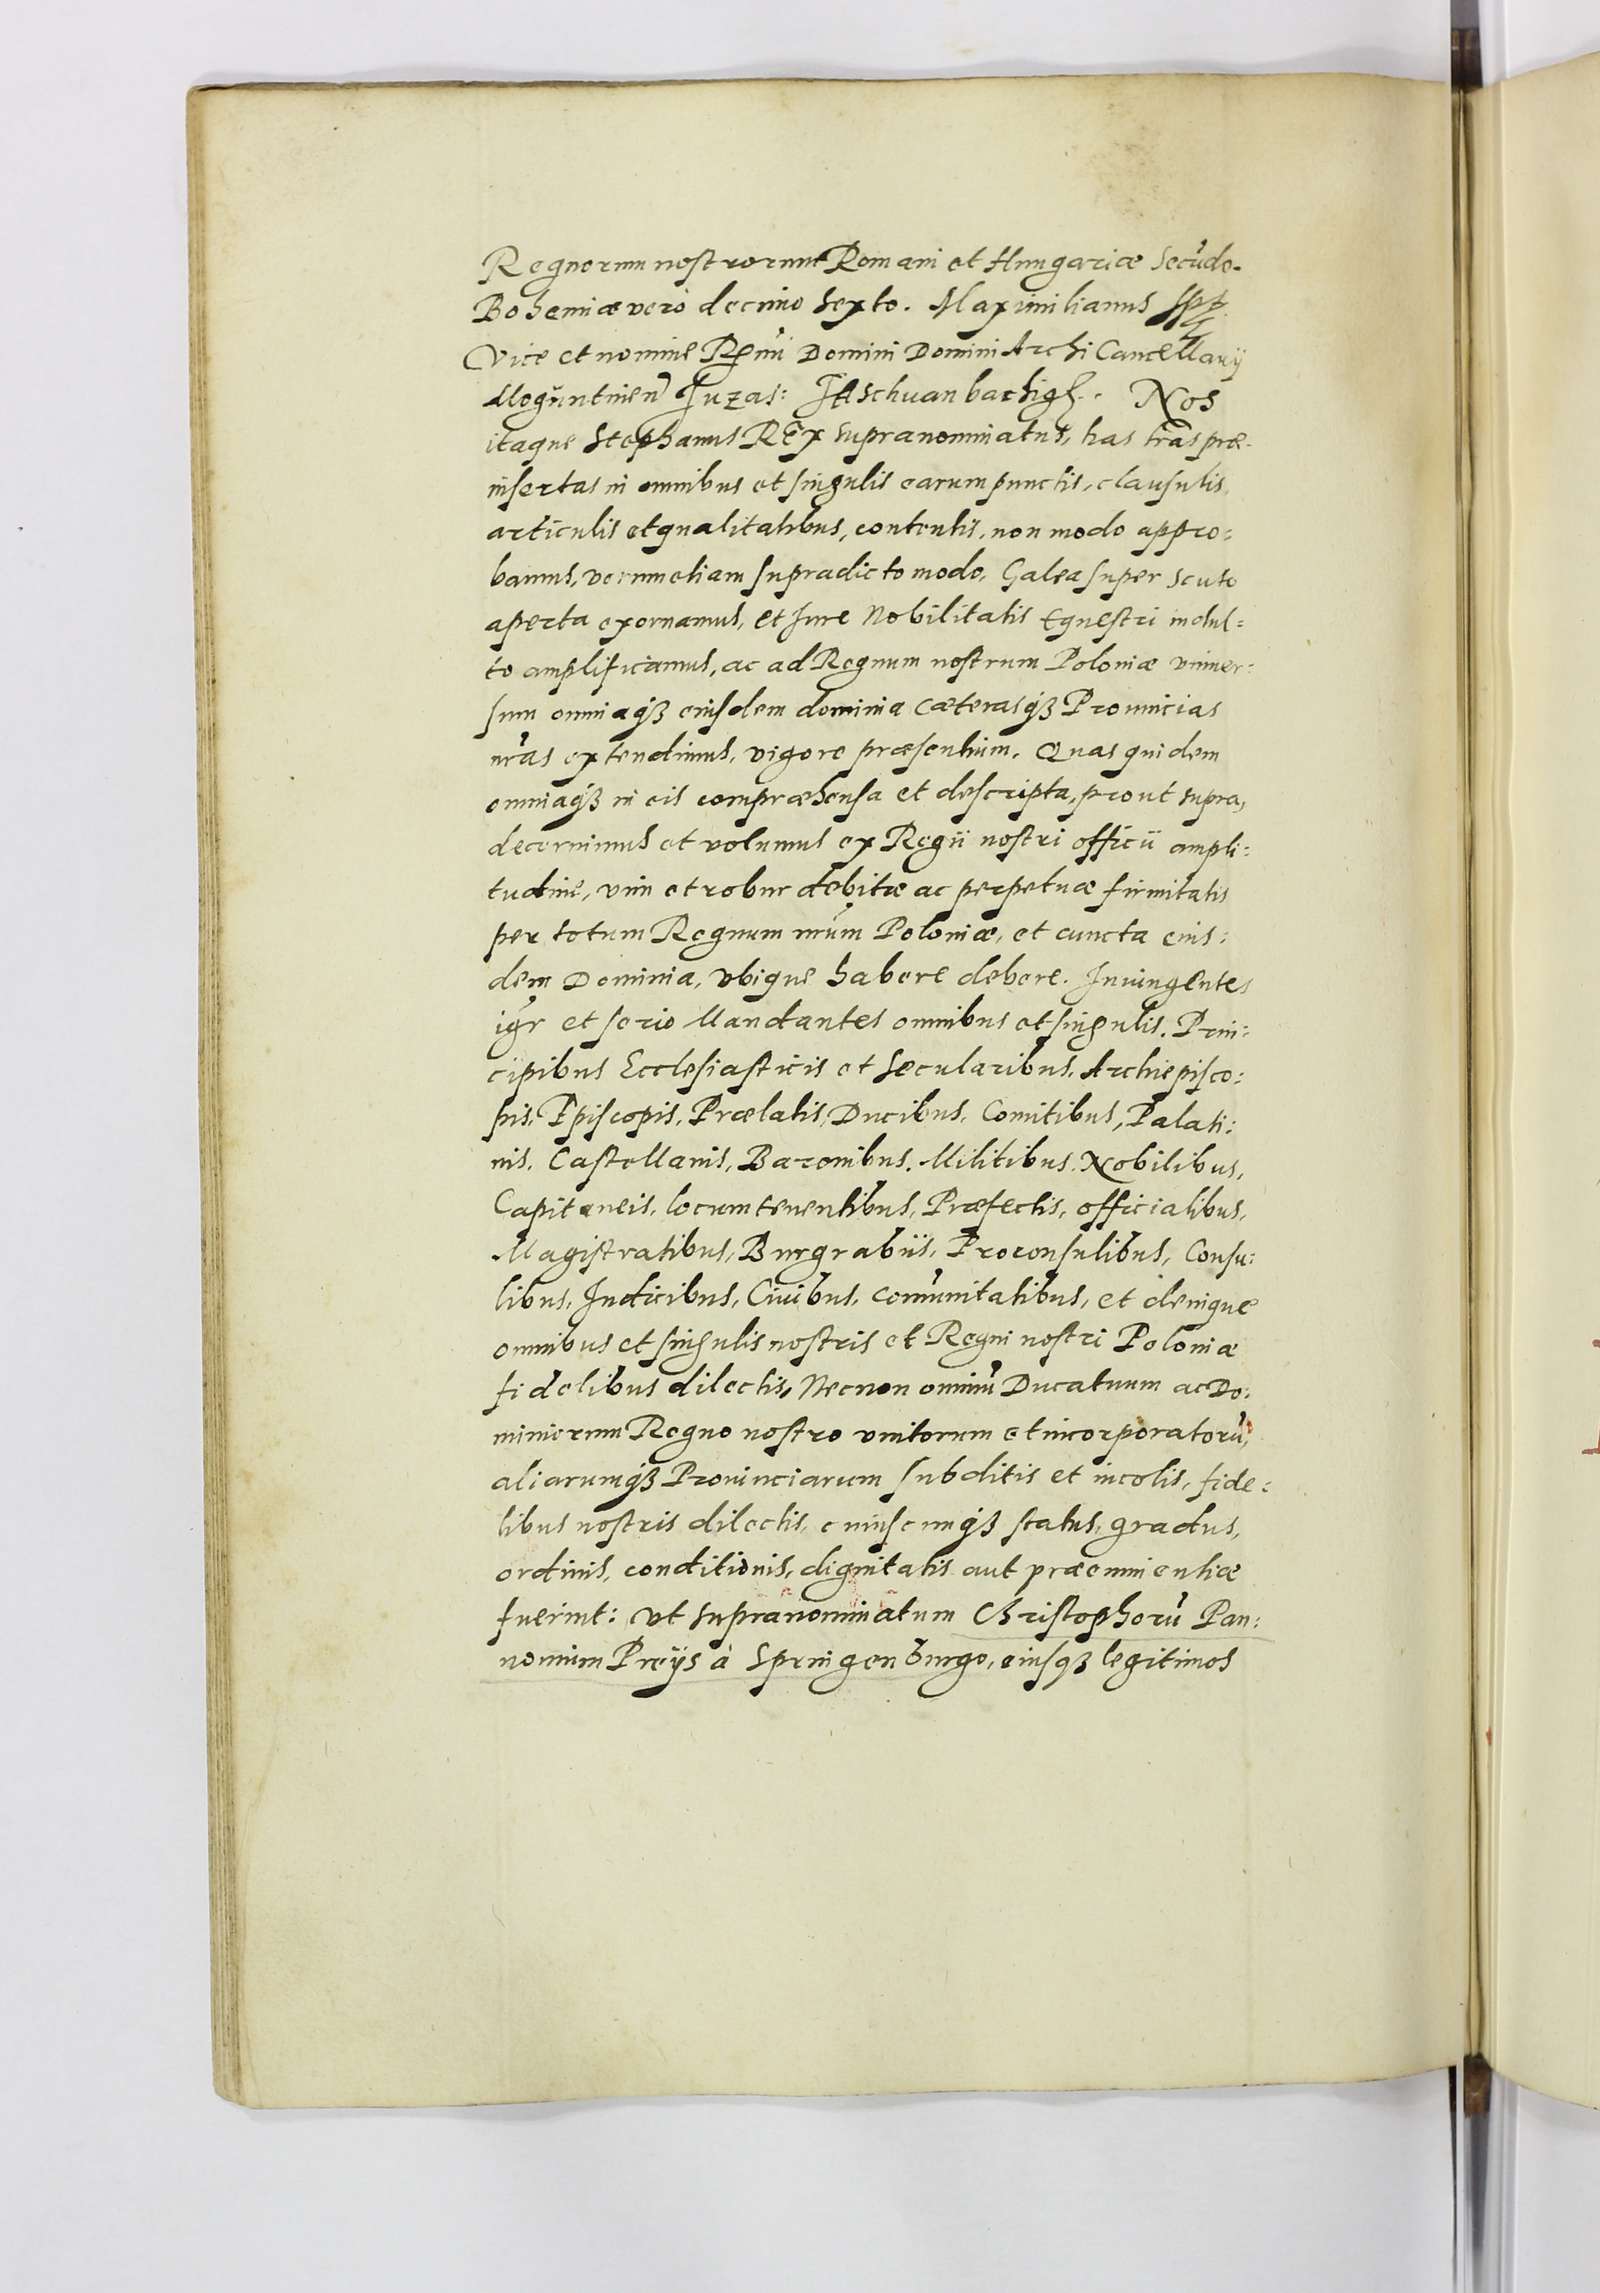 Regnorum nostrorum Romani et Hungaricæ Secūdo.
Bohemiæ verò decimo sexto. Maximilianus
Vice et nomine Rēmi Domini Domini Archi Cancellarij
Moguntinen̄ Jtschuanbachig Nos
itaque Stephanus REx supranominatus, has trās præ-
insertas in omnibus et singulis earum punctis, clausulis,
articulis et qualitatibus, contentis, non modo appro:
bamus, verum etiam supradicto modo, Galea super scuto
aperta exornamus, et Jure Nobilitatis Equestri indul:
to amplificamus, ac ad Regnum nostrum Poloniæ vniuer:
sum omniaqȝ eiusdem dominia cæterasqȝ Prouincias
nr̄as extendimus, vigore præsentium. Quas quidem
omniaqȝ in eis compræhensa et descripta, prout supra,
decernimus et volumus ex Regii nostri officii ampli:
tudine, vim et robur debitæ ac perpetuæ firmitatis
per totum Regnum nrūm Poloniæ, et cuncta eius:
dem Dominia, vbique habere debere. Iniungentes
igr̄ et serio Mandantes omnibus et singulis. Prin:
cipibus Ecclesiasticis et Sæcularibus, Archiepisco:
pis, Episcopis, Prælatis, Ducibus, Comitibus, Palati:
nis, Castellanis, Baronibus, Militibus, Nobilibus,
Capitaneis, locumtenentibus, Præfectis, officialibus,
Magistratibus, Burgrabiis, Proconsulibus, Consu:
libus, Judicibus, Ciuibus, com̄unitatibus, et denique
omnibus et singulis nostris et Regni nostri Poloniæ
fidelibus dilectis, Necnon omniū Ducatuum ac Do:
miniorum Regno nostro vnitorum et incorporatorū,
aliarumqȝ Prouinciarum subditis et incolis, fide:
libus nostris dilectis, cuiuscunqȝ status, gradus,
ordinis, conditionis, dignitatis aut præeminentiæ
fuerint: vt supranominatum Christophorū Pan:
nonium Preÿs à Springenburgo, eiusqȝ legitimos